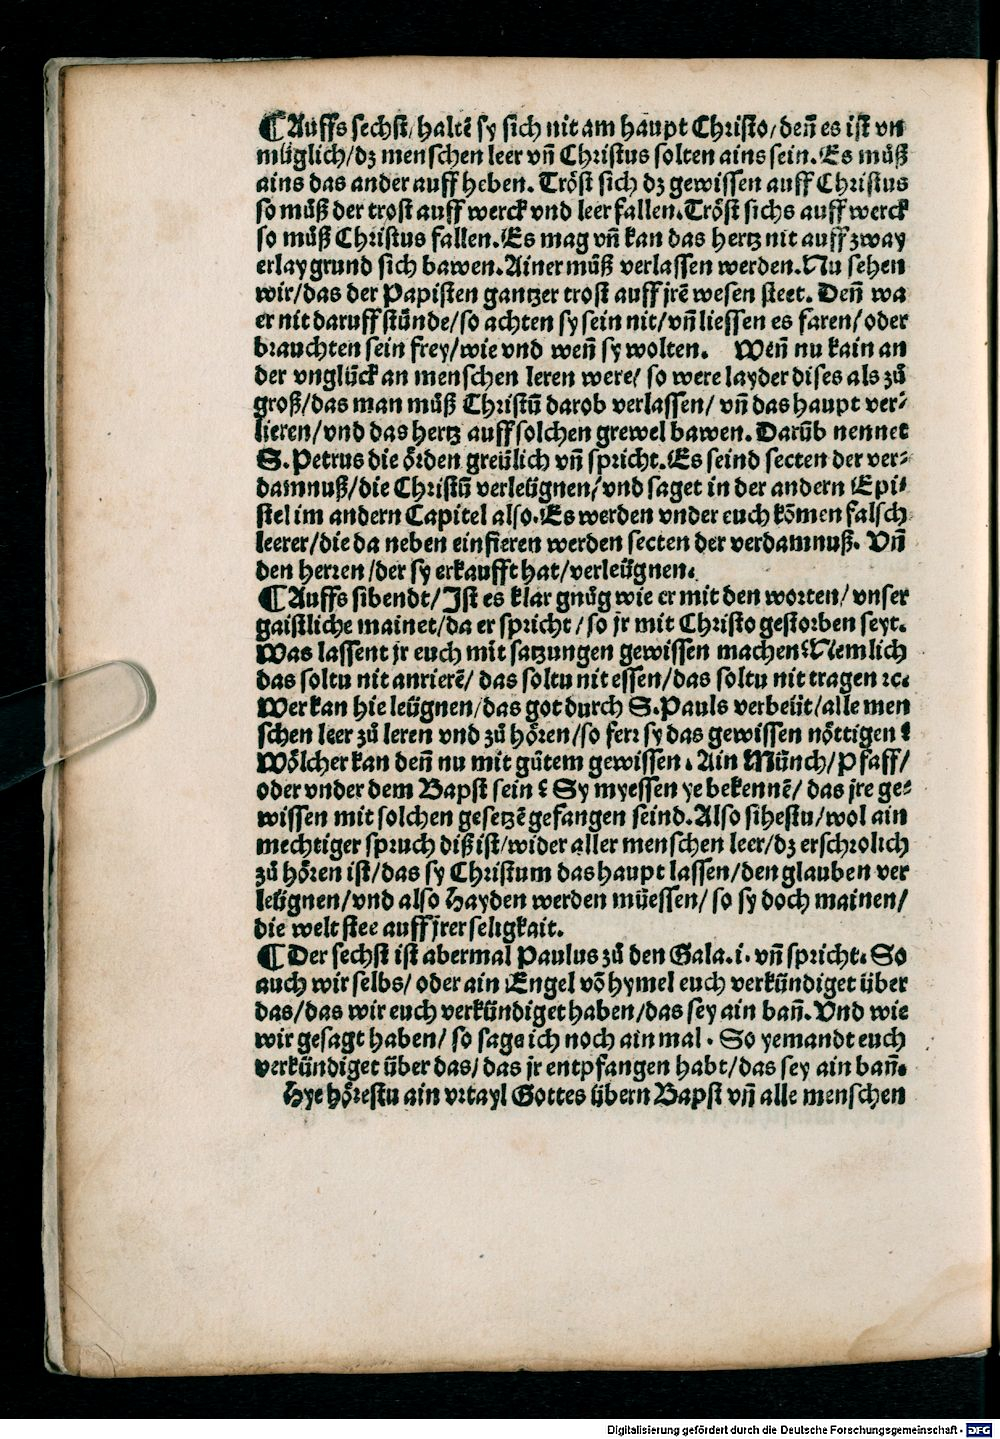 ¶ Auffs sechst/ haltē sy sich nit am haupt Christo/ deñ es ist vn
müglich/ dz menschen leer vñ Christus solten ains sein. Es můß
ains das ander auff heben. Tröst sich dz gewissen auff Christus
so můß der trost auff werck vnd leer fallen. Tröst sichs auff werck
so můß Christus fallen. Es mag vñ kan das hertz nit auff zway
erlay grund sich bawen. Ainer můß verlassen werden. Nu sehen
wir/ das der Papisten gantzer trost auff jrē wesen steet. Deñ wa
er nit daruff stünde/ so achten sy sein nit/ vñ liessen es faren/ oder
brauchten sein frey/ wie vnd weñ sy wolten. Weñ nu kain an
der vnglück an menschen leren were/ so were layder dises als zů
groß/ das man můß Christū darob verlassen/ vñ das haupt ver⸗
lieren/ vnd das hertz auff solchen grewel bawen. Darūb nennet
S. Petrus die örden greülich vñ spricht. Es seind secten der ver⸗
damnuß/ die Christū verleügnen/ vnd saget in der andern Epi⸗
stel im andern Capitel also. Es werden vnder euch kōmen falsch
leerer/ die da neben einfieren werden secten der verdamnuß. Vñ
den herren/ der sy erkaufft hat/ verleügnen.
¶ Auffs sibendt/ Jst es klar gnůg wie er mit den worten/ vnser
gaistliche mainet/ da er spricht/ so jr mit Christo gestorben seyt.
Was lassent jr euch mit satzungen gewissen machen? Nemlich
das soltu nit anrierē/ das soltu nit essen/ das soltu nit tragen ꝛc.
Wer kan hie leügnen/ das got durch S. Pauls verbeüt/ alle men
schen leer zů leren vnd zů hören/ so ferr sy das gewissen nöttigen?
Wölcher kan deñ nu mit gůtem gewissen. Ain Münch/ Pfaff/
oder vnder dem Bapst sein? Sy myessen ye bekennē/ das jre ge⸗
wissen mit solchen gesetzē gefangen seind. Also sihestu/ wol ain
mechtiger spruch diß ist/ wider aller menschen leer/ dz erschrolich
zů hören ist/ das sy Christum das haupt lassen/ den glauben ver
leügnen/ vnd also Hayden werden müessen/ so sy doch mainen/
die welt stee auff jrer seligkait.
¶ Der sechst ist abermal Paulus zů den Gala. i. vñ spricht. So
auch wir selbs/ oder ain Engel vō hymel euch verkündiget über
das/ das wir euch verkündiget haben/ das sey ain bañ. Vnd wie
wir gesagt haben/ so sage ich noch ain mal. So yemandt euch
verkündiget über das/ das jr entpfangen habt/ das sey ain bañ.
Hye hörestu ain vrtayl Gottes übern Bapst vñ alle menschen
Digitalisierung gefördert durch die Deutsche Forschungsgemeinschaft - DFG